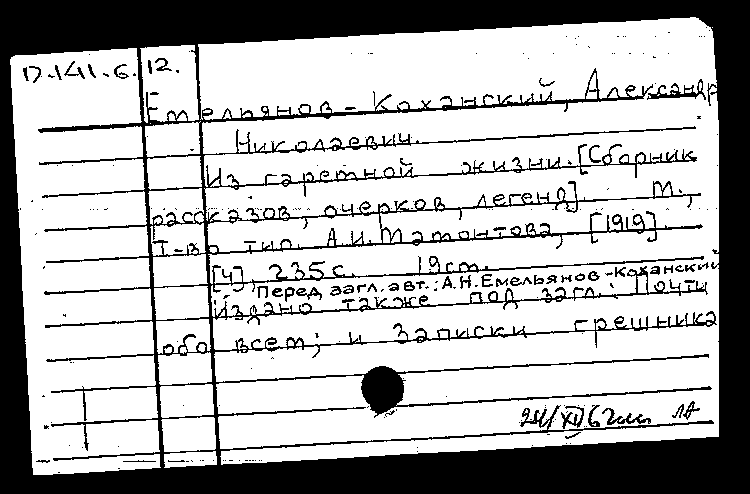 D.141.6.12.
Емельянов-Коханский, Александр
Николаевич.
Из гаретной жизни. [Сборник
рассказов, очерков, легенд]. М.,
Т-во тип. А.И. Мамонтова, [1919].
[4], 235 с. 19 cm.
Перед загл. авт.: А.Н. Емельянов-Коханский
Издано также под загл.: Почти
обо всем; и Записки грешника
ЛА